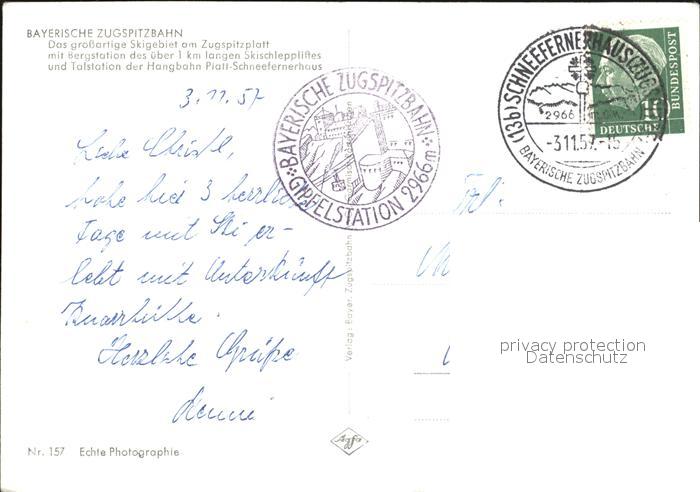 BAYERISCHE ZUGSPITZBAHN
Das großartige Skigebiet am Zugspitzplatt
mit Bergstation des über 1 km langen Skischleppliftes
und Talstation der Hangbahn Platt-Schneefernerhaus
3.11.57
Liebe
habe hier 3 herrliche
Tage mit Ski er-
lebt mit Unterkunft
Knorrhütte.
Herzliche Grüße
BAYERISCHE ZUGSPITZBAHN
GIPFELSTATION 2966m
(13b) SCHNEEFERNERHAUS (ZUG
2966
-3.11.57.-15
BAYERISCHE ZUGSPITZBAHN
DEUTSCHE
BUNDESPOST
10
Frl.
Verlag: Bayer. Zugspitzbahn
privacy protection
Datenschutz
Nr. 157 Echte Photographie
Agfa